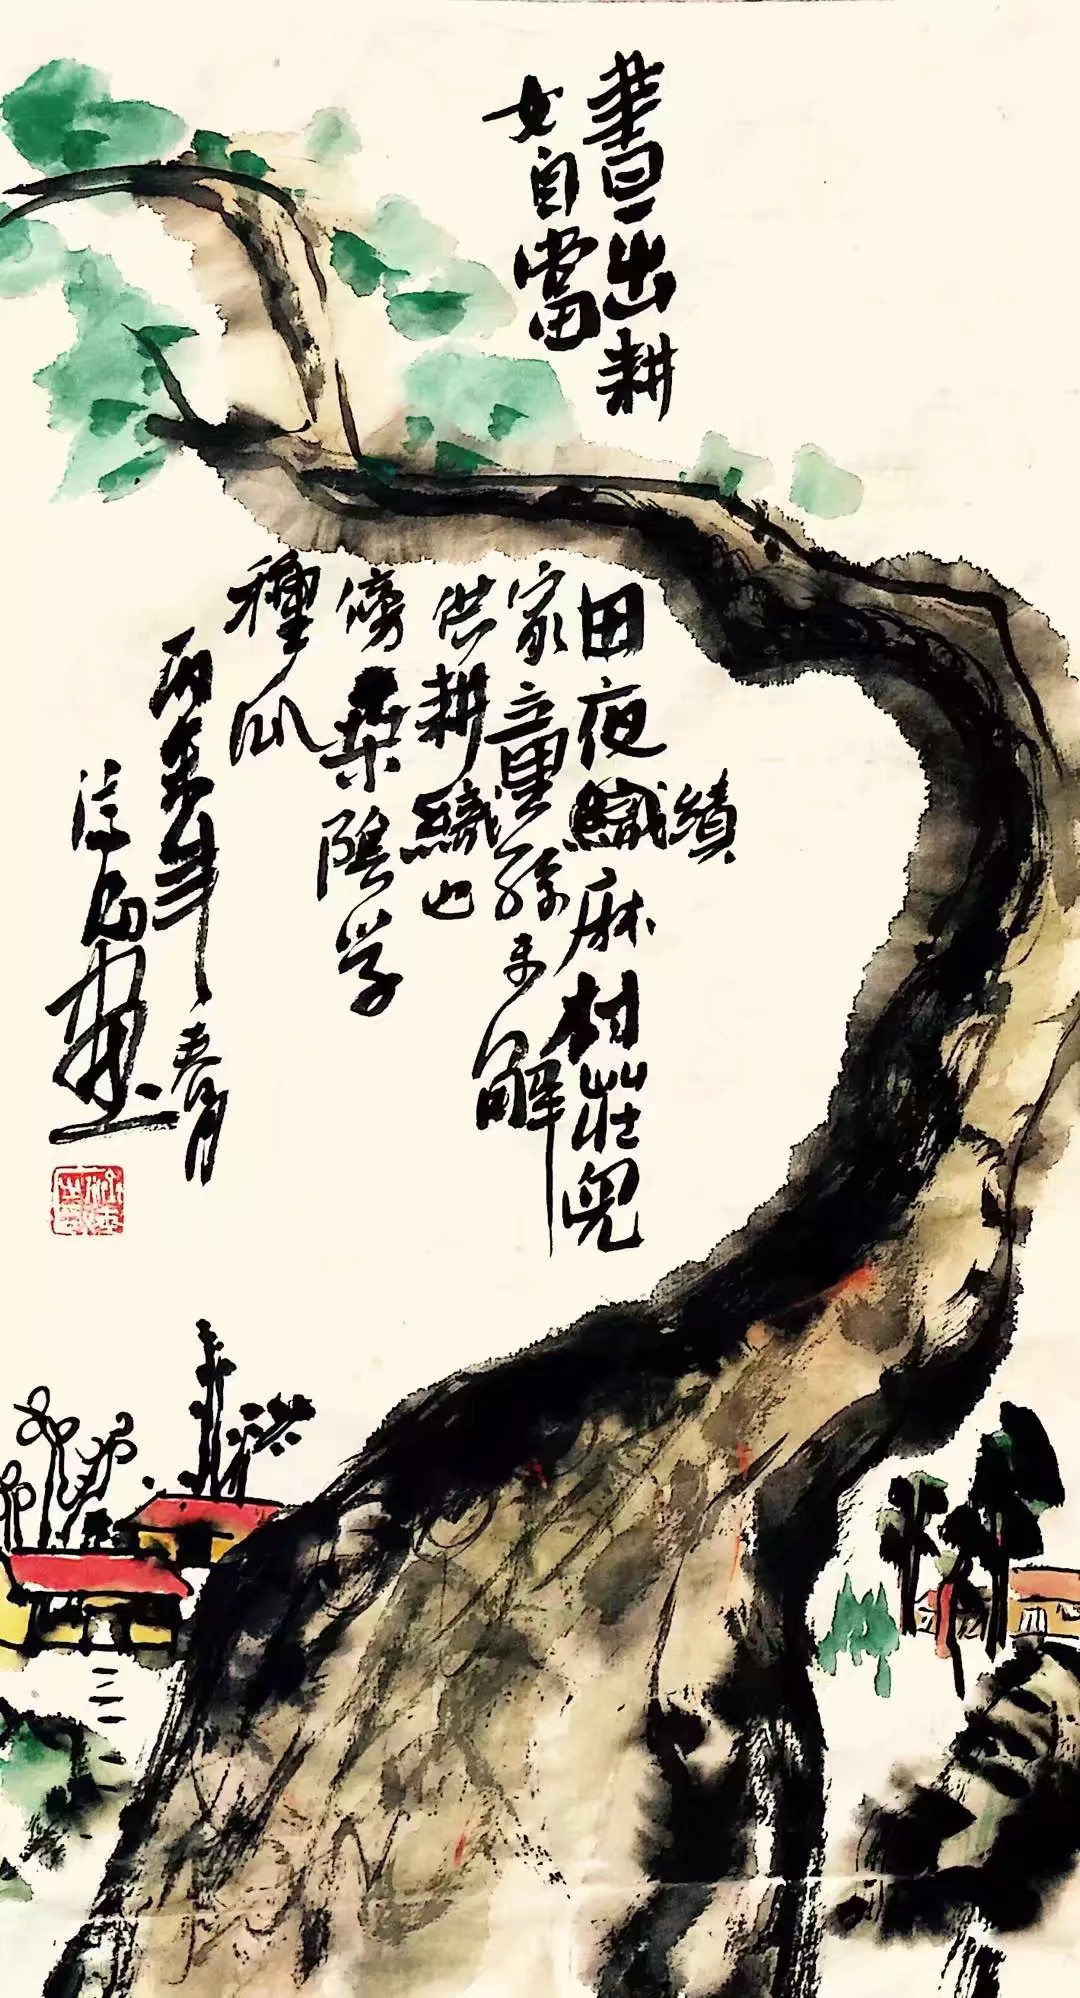 晝出耕
田夜織麻村莊兒
績
女自當
家童孫未解
供耕織也
傍桑陰学
種瓜
年春月
画